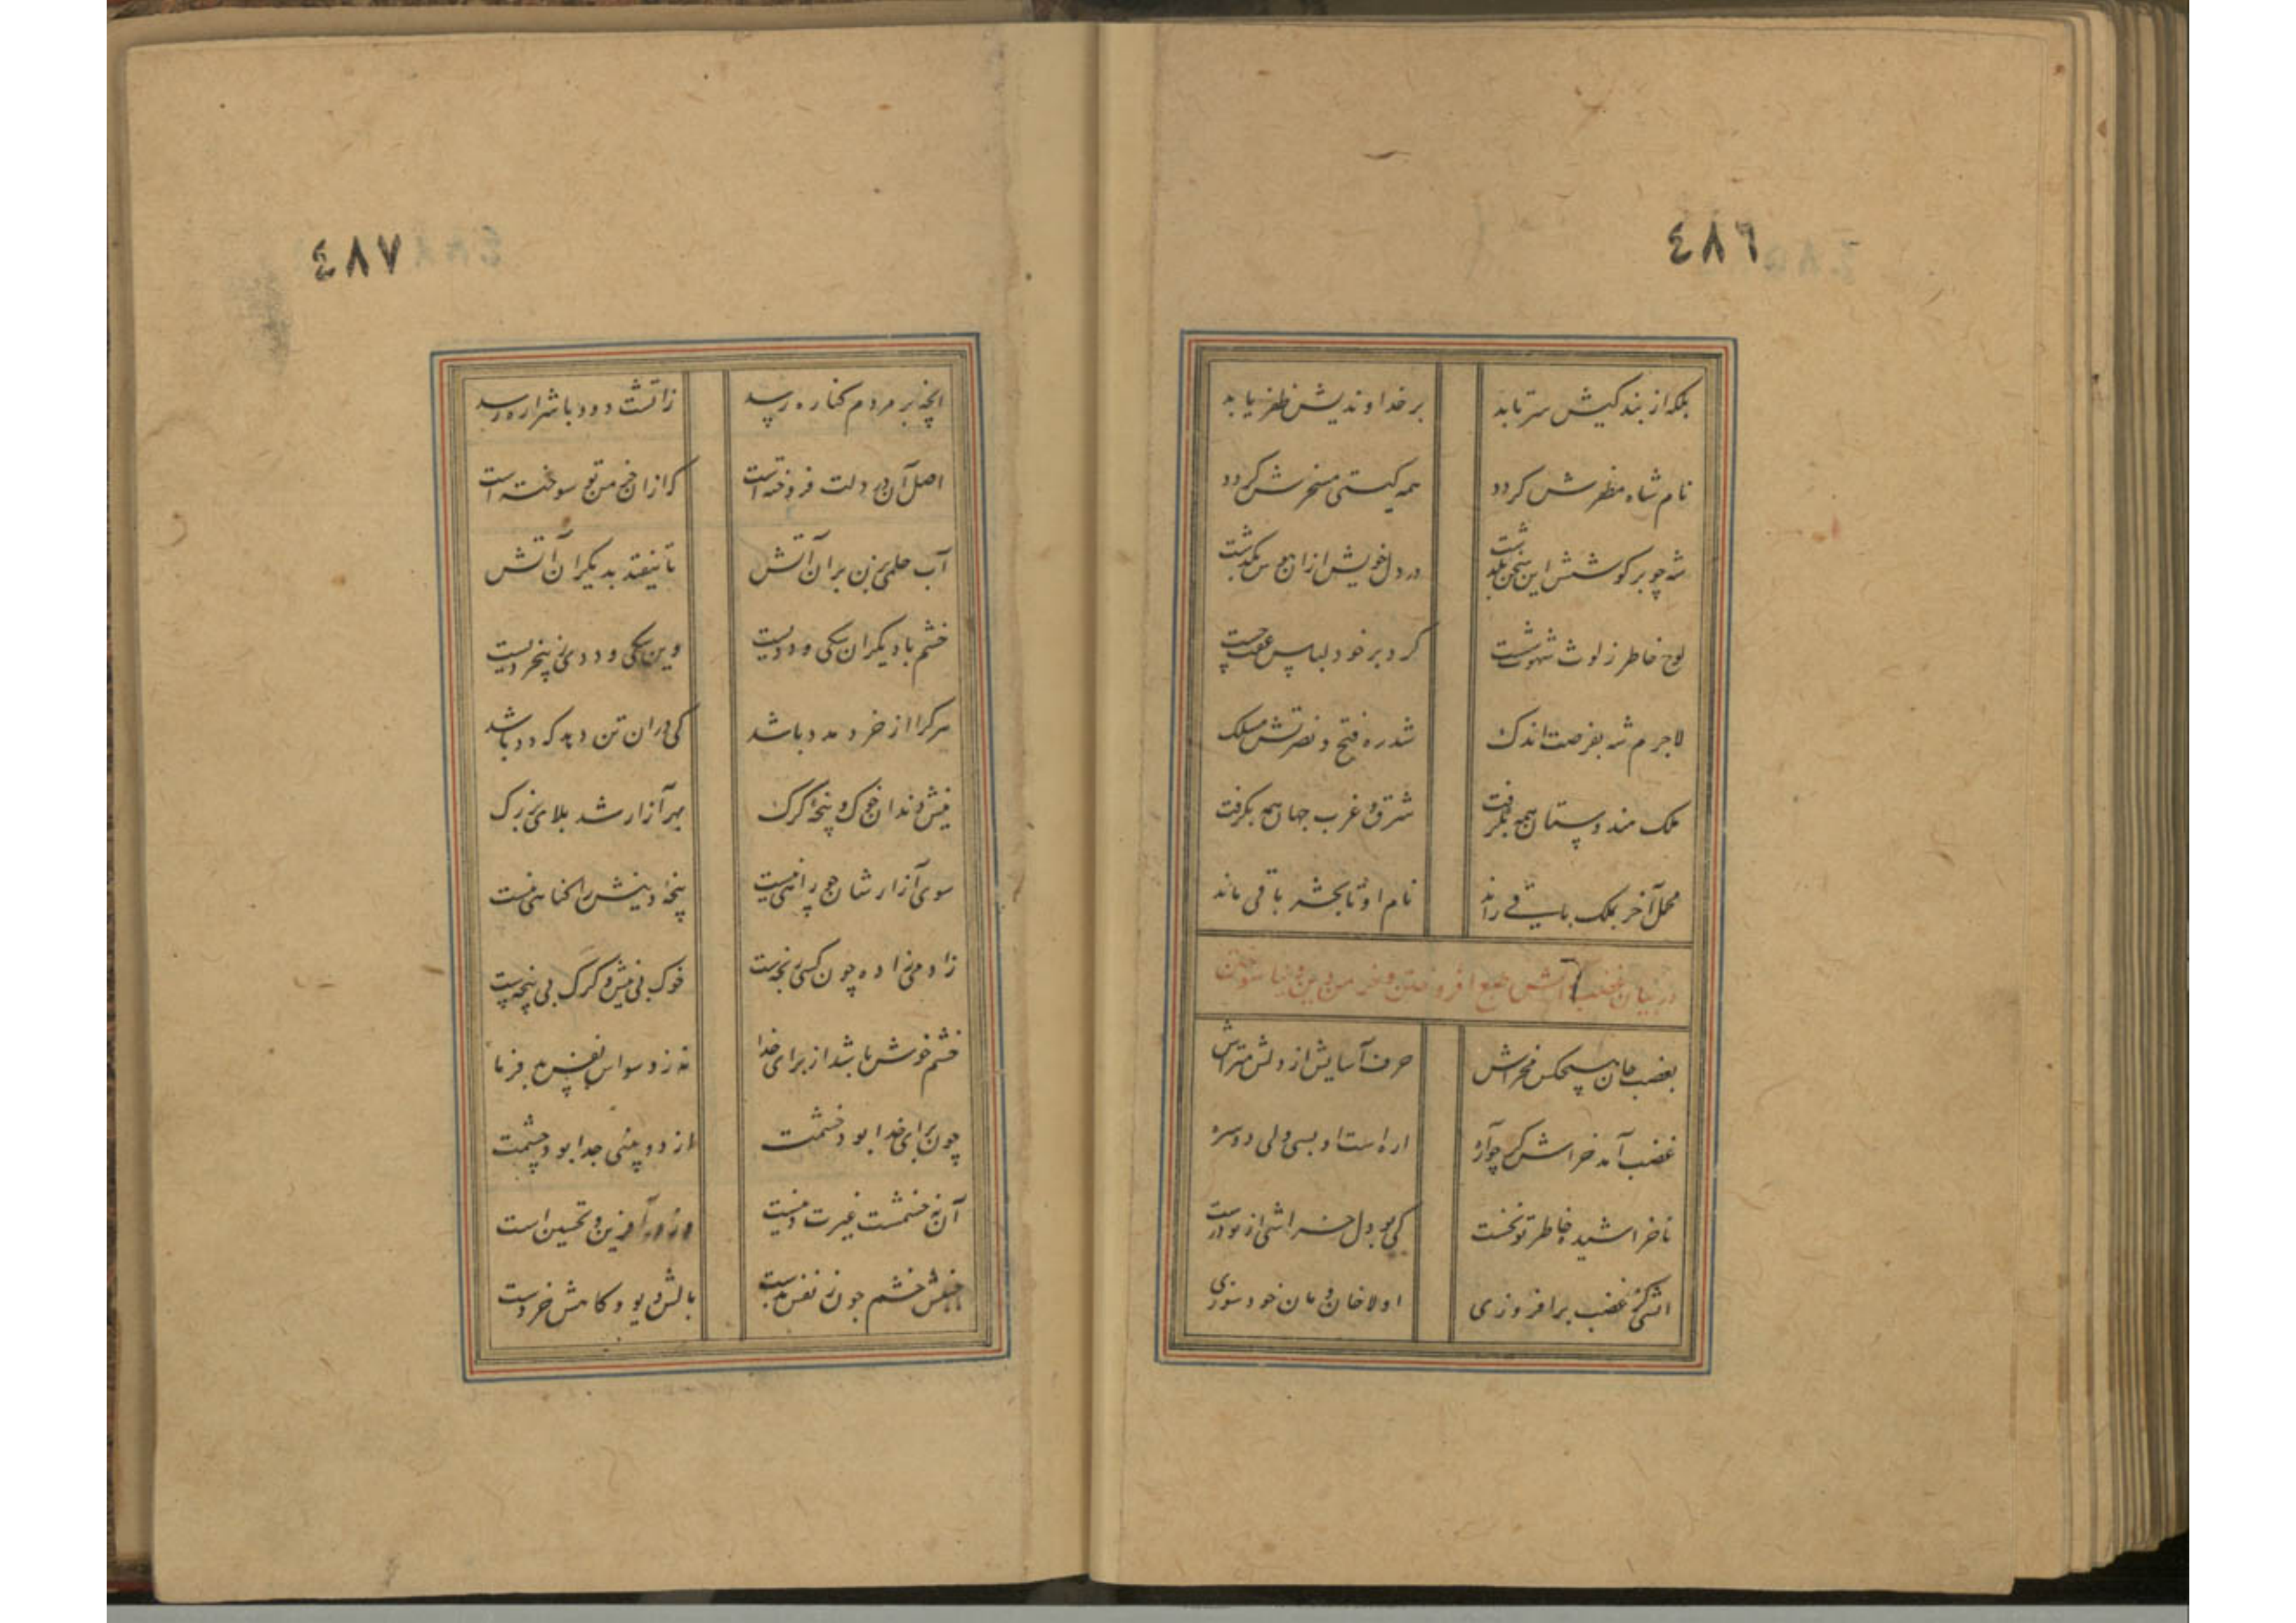 ٤٨٦
بلکه از بندکیش سرتابد برخداوندیش ظفر یابد
نام شاه مظفرش کردد همه کیتی مسخرش کردد
شه چو بر کوشش این سخن بگذشت در دل خویش ازان هوس بگذشت
لوح خاطر ز لوث شهوت شست کرد بر خود لباس عفت چست
لاجرم شه بفرصت اندک شد ره فتح و نصرتش مسلک
ملک هندوستان همه بگرفت شرق و غرب جهان همه بگرفت
محمل آخر بملک باقی راند نام او تا بحشر باقی ماند
در بیان غضب آتش طبع افروختن و خرمن دین و دنیا سوختن
بغضب جان هیچکس مخراش حرف آسایش از دلش متراش
غضب آمد خراش کر چو آره اره است او بسی ولی دو سره
ناخراشیده خاطر تو نخست کی بود دل خراشی از تو درست
آتشی کز غضب برافروزی اولا خان و مان خود سوزی
٤٨٧
آنچه بر مردم کناره رسد زاتشت دود یا شراره رسد
اصل آن در دلت فروخته است که ازان خرمن تو سوخته است
آب حلمی بزن بران آتش تا نیفتد بدیکران آتش
خشم با دیکران سکی و ددیست وین سکی و ددی ز بیخردیست
هر کرا از خرد مدد باشد کی دران تن دهد که دد باشد
نیش دندان خوک و پنجه کرک بهر آزار شد بلای بزرک
سوی آزارشان چو راهی نیست پنجه و نیش را کناهی نیست
زادمی زاده چون کسی نجست خوک بی نیش و کرک بی پنجه ست
خشم خوش باشد از برای خدا نه ز وسواس نفس بد فرما
چون برای خدا بود خشمت از دو بینی جدا بود چشمت
آن نه خشمست غیرت دینست درخور آفرین و تحسین است
جنبش خشم چون ز نفس بدست بالش دیو و کاهش خردست